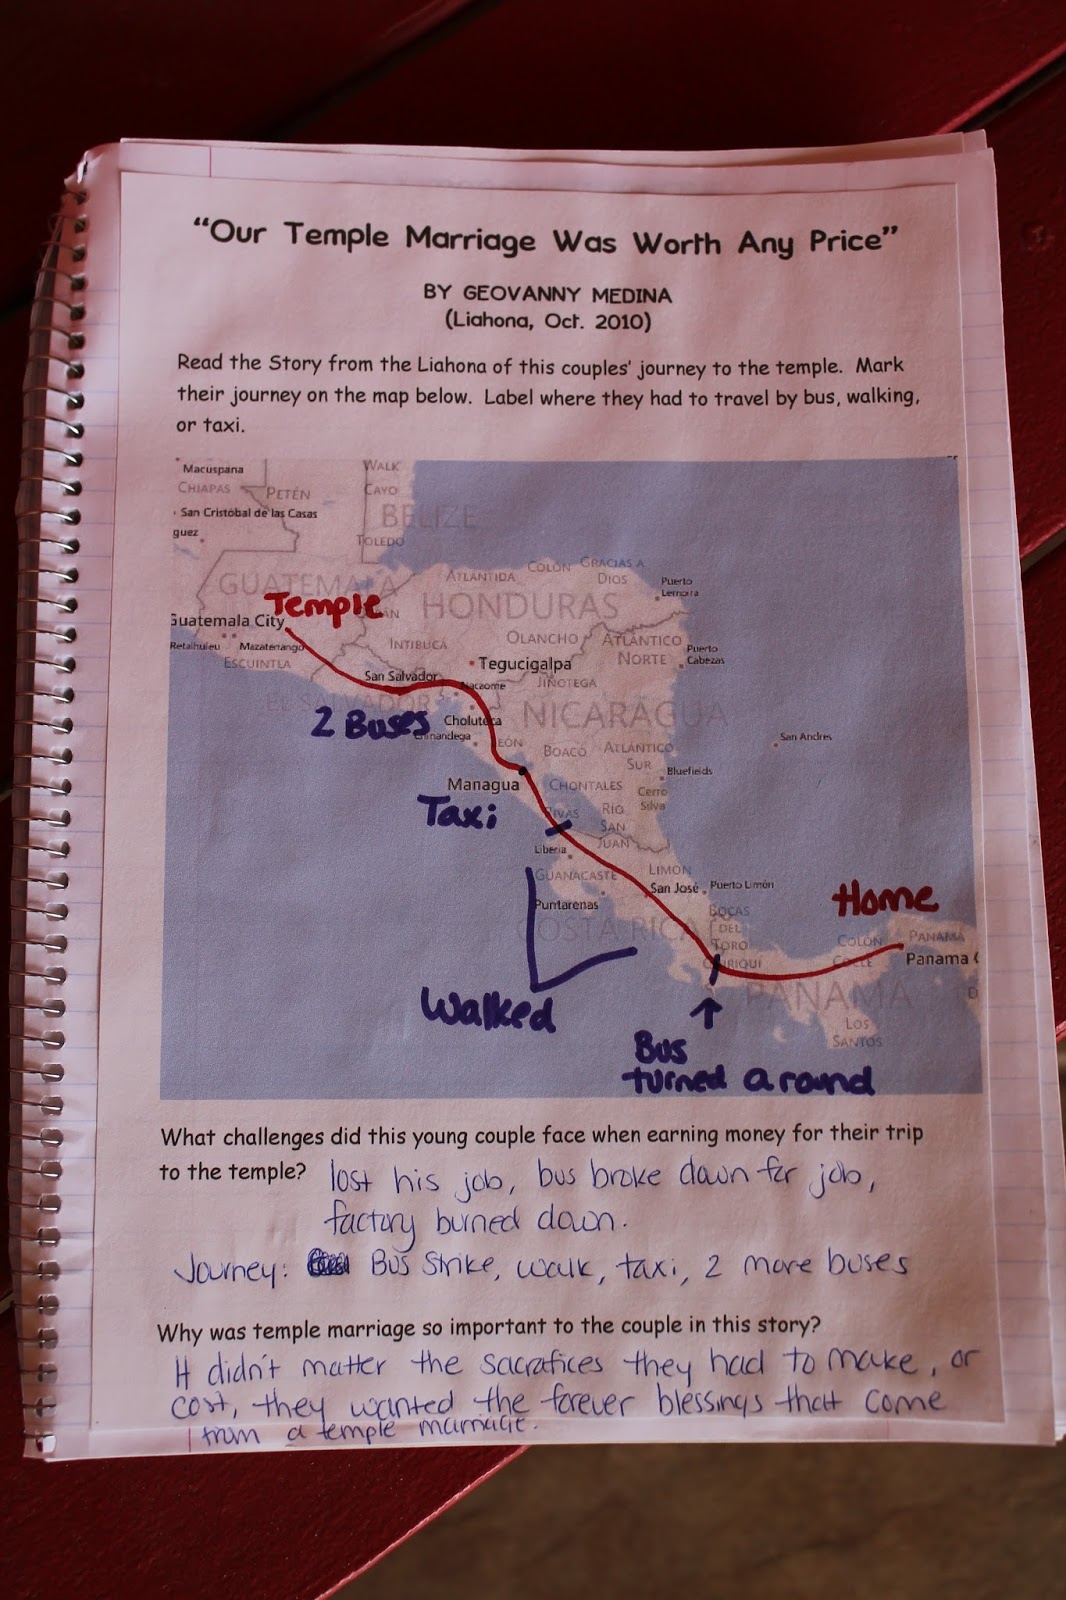 “Our Temple Marriage Was Worth Any Price”
BY GEOVANNY MEDINA
(Liahona, Oct. 2010)
Read the Story from the Liahona of this couples’ journey to the temple. Mark
their journey on the map below. Label where they had to travel by bus, walking,
or taxi.
Macuspana
WALK
CHIAPAS
PETÉN
CAYO
San Cristóbal de las Casas
BELIZE
guez
TOLEDO
COLÓN
GRACIAS A
DIOS
ATLÁNTIDA
GUATEMALA
Puerto
Lempira
Temple
HONDURAS
Guatemala City
OLANCHO
ATLÁNTICO
NORTE
Retalhuleu
Mazatenango
INTIBUCÁ
Puerto
Cabezas
ESCUINTLA
Tegucigalpa
San Salvador
Nacaome
JINOTEGA
EL SALVADOR
NICARAGUA
2 Buses
Choluteca
Chinandega
LEÓN
BOACO
ATLÁNTICO
SUR
San Andres
Bluefields
Managua
CHONTALES
Cerro
Silva
Taxi
RIVAS
RÍO
SAN
JUAN
Liberia
GUANACASTE
LIMÓN
San José
Puerto Limón
Home
Puntarenas
COSTA RICA
BOCAS
DEL
TORO
COLÓN
PANAMÁ
CHIRIQUÍ
COCLÉ
Panama C
Walked
PANAMA
D
LOS
SANTOS
Bus
turned around
What challenges did this young couple face when earning money for their trip
to the temple? lost his job, bus broke down for job,
factory burned down.
Journey: Bus strike, walk, taxi, 2 more buses
Why was temple marriage so important to the couple in this story?
It didn't matter the sacrafices they had to make, or
cost, they wanted the forever blessings that come
from a temple marriage.